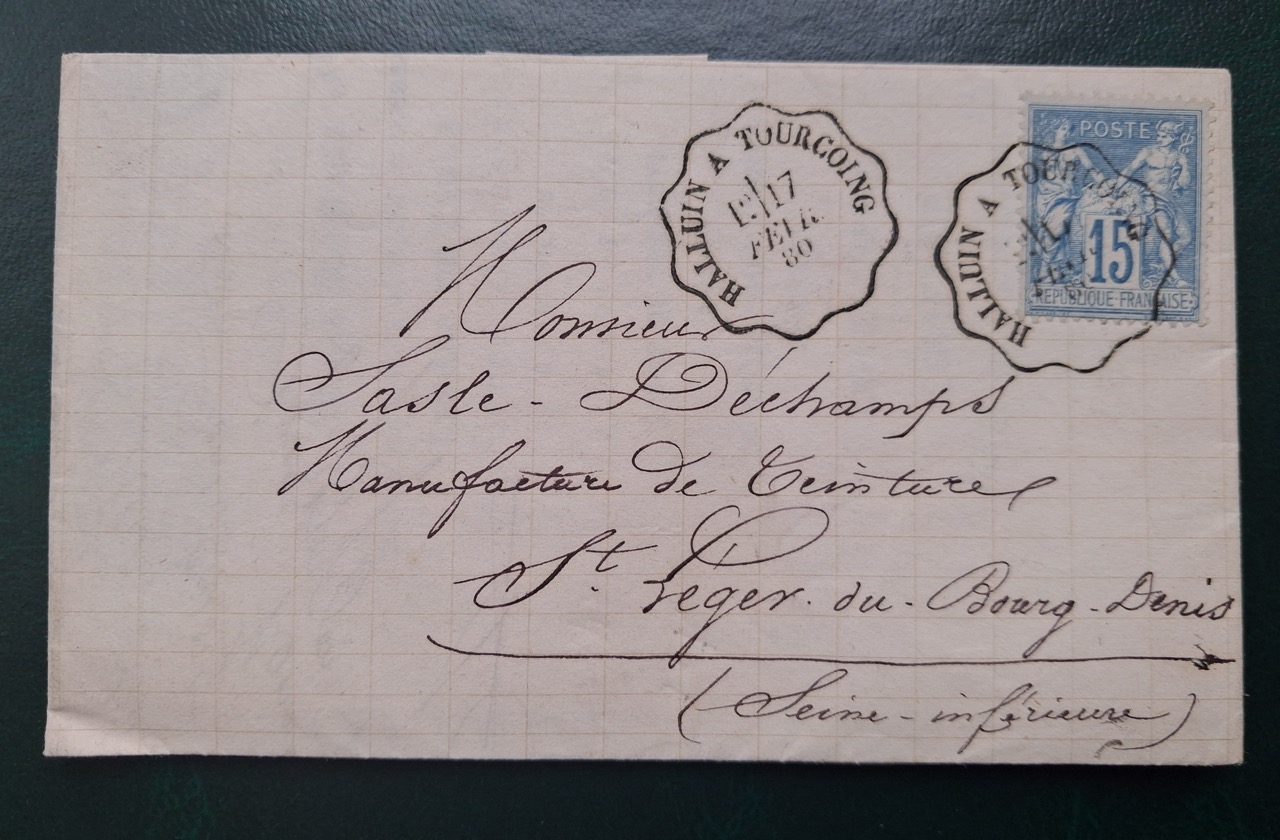 HALLUIN A TOURCOING
17
FEVR.
80
HALLUIN A TOURCOING
POSTE
15
REPUBLIQUE·FRANÇAISE
Monsieur
Sasle - Déchamps
Manufacture de Teintures
St. Leger. du - Bourg - Denis
(Seine - inférieure)